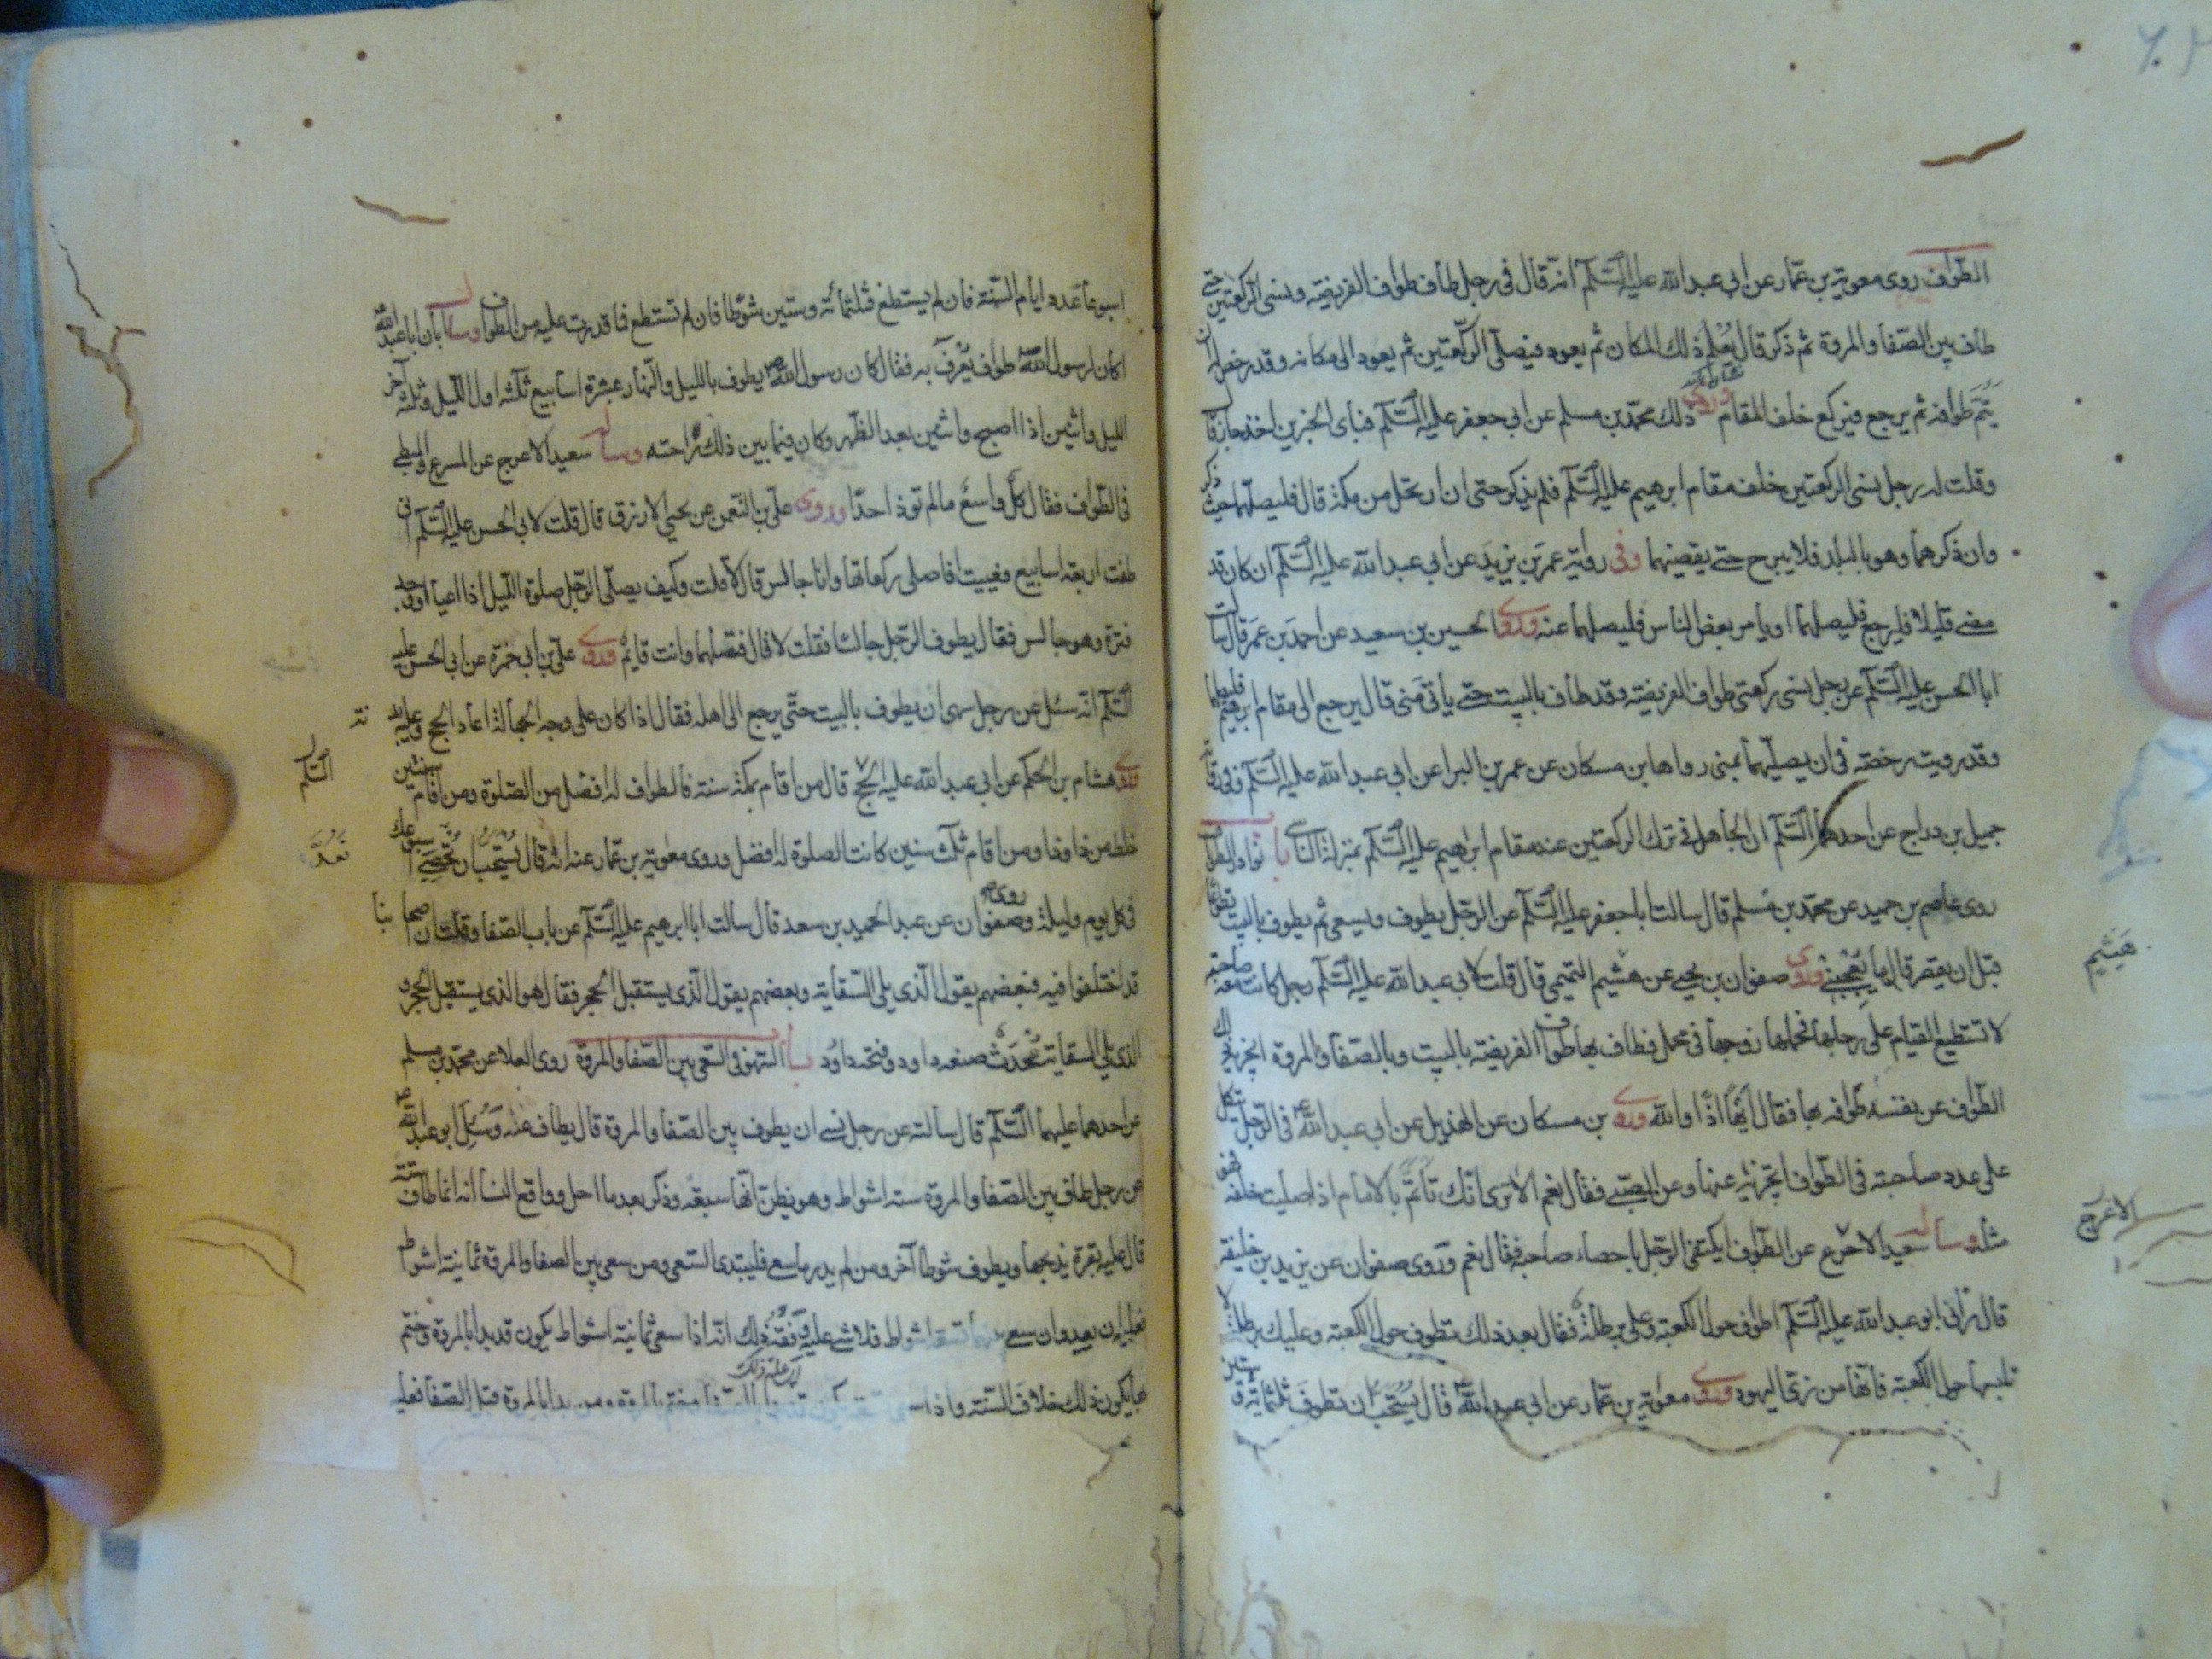 الطواف روى معوية بن عمار عن ابي عبد الله عليه السلم انه قال في رجل طاف طواف الفريضة ونسى الركعتين حتى
طاف بين الصفا والمروة ثم ذكر قال يعلم ذلك المكان ثم يعود فيصلى الركعتين ثم يعود الى مكانه وقد رخص له ان
يتم طوافه ثم يرجع فيركع خلف المقام روى ذلك محمد بن مسلم عن ابي جعفر عليه السلم فباى الخبرين اخذ جاز
وقلت له رجل نسى الركعتين خلف مقام ابرهيم عليه السلم فلم يذكر حتى ارتحل من مكة قال فليصلهما حيث ذكر
وان ذكرهما وهو بالبلد فلا يبرح حتى يقضيهما وفى رواية عمر بن يزيد عن ابي عبد الله عليه السلم ان كان قد
مضى قليلا فليرجع فليصلهما او يامر بعض الناس فليصلهما عنه وروى الحسين بن سعيد عن احمد بن عمر قال سالت
ابا الحسن عليه السلم عن رجل نسى ركعتى طواف الفريضة وقد طاف بالبيت حتى ياتى منى قال يرجع الى مقام ابرهيم فليصلهما
وقد رويت رخصة فى ان يصليهما بمنى رواها ابن مسكان عن عمر بن البرا عن ابي عبد الله عليه السلم وفى رواية
جميل بن دراج عن احدهما السلم ان الجاهل فى ترك الركعتين عند مقام ابراهيم عليه السلم بمنزلة الناسى باب نوادر الطواف
روى عاصم بن حميد عن محمد بن مسلم قال سالت ابا جعفر عليه السلم عن الرجل يطوف ويسعى ثم يطوف بالبيت تطوعا
قبل ان يقصر قال ما يعجبنى وروى صفوان بن يحيى عن هشيم التميمى قال قلت لابى عبد الله عليه السلم رجل كانت معه صاحبة
لا تستطيع القيام على رجلها فحملها زوجها فى محمل فطاف بها طواف الفريضة بالبيت وبالصفا والمروة ايجزيه ذلك
الطواف عن نفسه طوافه بها فقال ايها اذا والله وروى بن مسكان عن الهذيل عن ابي عبد الله ع فى الرجل يتكل
على عدد صاحبته فى الطواف ايجزيه عنها وعن الصبى فقال نعم الا ترى انك تاتم بالامام اذا صليت خلفه فهو
مثله وساله سعيد الاعرج عن الطواف ايكتفى الرجل باحصاء صاحبه فقال نعم وروى صفوان عن يزيد بن خليفة
قال رانى ابو عبد الله عليه السلم اطوف حول الكعبة وعلى برطلة فقال بعد ذلك تطوف حول الكعبة وعليك برطلة لا
تلبسها حول الكعبة فانها من زى اليهود وروى معوية بن عمار عن ابي عبد الله ع قال يستحب ان تطوف ثلثماية وستين
هشيم
الاعرج
اسبوعا عدد ايام السنة فان لم يستطع فثلثمائة وستين شوطا فان لم تستطع فما قدرت عليه من الطواف وسال ابان ابا عبد الله
اكان لرسول الله طواف يعرف به فقال كان رسول الله ص يطوف بالليل والنهار عشرة اسابيع ثلثة اول الليل وثلثة آخر
الليل واثنين اذا اصبح واثنين بعد الظهر وكان فيما بين ذلك راحته وساله سعيد الاعرج عن المسرع والمبطى
فى الطواف فقال كل واسع ما لم توذ احدا وروى على بن النعمن عن يحيى الازرق قال قلت لابى الحسن عليه السلم انى
طفت اربعة اسابيع فعييت افاصلى ركعاتها وانا جالس قال لا قلت وكيف يصلى الرجل صلوة الليل اذا اعيا او وجد
فترة وهو جالس فقال يطوف الرجل جالسا فقلت لا قال فتصلهما وانت قايم وروى على بن ابي حمزة عن ابي الحسن عليه
السلم انه سئل عن رجل سهى ان يطوف بالبيت حتى يرجع الى اهله فقال اذا كان على وجه الجهالة اعاد الحج وعليه بد
نة
وروى هشام بن الحكم عن ابي عبد الله عليه قال من اقام بمكة سنة فالطواف له افضل من الصلوة ومن اقام سنتين
السلم
خلط من ذا وذا ومن اقام ثلث سنين كانت الصلوة له افضل وروى معوية بن عمار عنه انه قال يستحب ان تحصى اسبوعك
فى كل يوم وليلة روى صفوان عن عبد الحميد بن سعد قال سالت ابا ابرهيم عليه السلم عن باب الصفا وقلت ان اصحا بنا
قد اختلفوا فيه فبعضهم يقول الذى يلى السقاية وبعضهم يقول الذى يستقبل الحجر فقال هو الذى يستقبل الحجر و
الذى يلى السقاية محدث صنعه داود وفتحه داود باب السهو فى السعى بين الصفا والمروة روى العلا عن محمد بن مسلم
عن احدهما عليهما السلم قال سالته عن رجل نسى ان يطوف بين الصفا والمروة قال يطاف عنه وسئل ابو عبد الله ع
عن رجل طاف بين الصفا والمروة ستة اشواط وهو يظن انها سبعة وذكر بعد ما احل وواقع النسا انه انما طاف ستة
قال عليه بقرة يذبحها ويطوف شوطا آخر ومن لم يدر ما سعى فليبتدى السعى ومن سعى بين الصفا والمروة ثمانية اشواط
فعليه ان يعيد وان سعى بينهما تسعة اشواط فلا شى عليه وفقه ذلك انه اذا سعى ثمانية اشواط يكون قد بدا بالمروة وختم
بها يكون ذلك خلاف السنة واذا سعى بالمروة ومن بدا بالمروة قبل الصفا فعليه